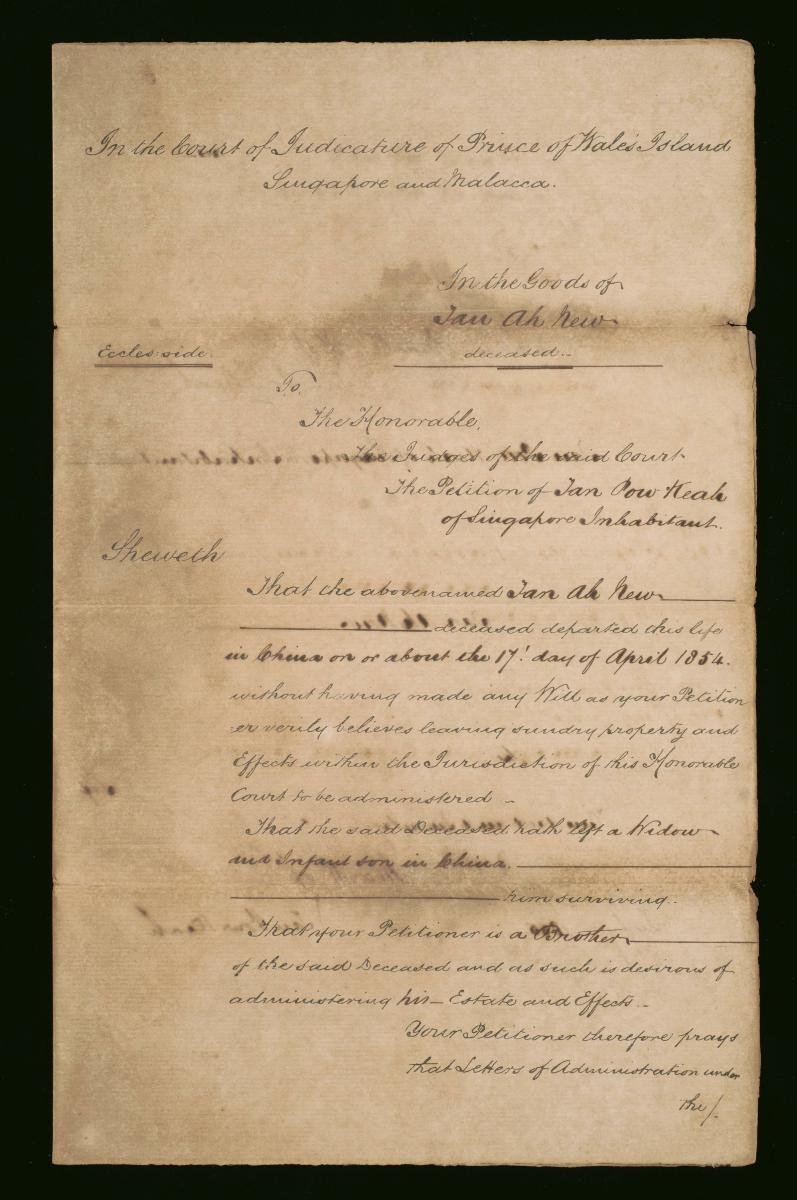 In the Court of Judicature of Prince of Wales Island
Singapore and Malacca.
In the Goods of
Tan Ah New
Eccles: side. deceased..
To.
The Honorable,
The Judges of the said Court
The Petition of Tan Pow Keah
of Singapore Inhabitant.
Sheweth
That the abovenamed Tan Ah New
deceased departed this life
in China on or about the 17! day of April 1854.
without having made any Will as your Petition
er verily believes leaving sundry property and
Effects within the Jurisdiction of this Honorable
Court to be administered –
That the said Deceased hath left a Widow
and Infant son in China.
him surviving..
That your Petitioner is a Brother
of the said Deceased and as such is desirous of
administering his – Estate and Effects. –
Your Petitioner therefore prays
that Letters of Administration under
the /.